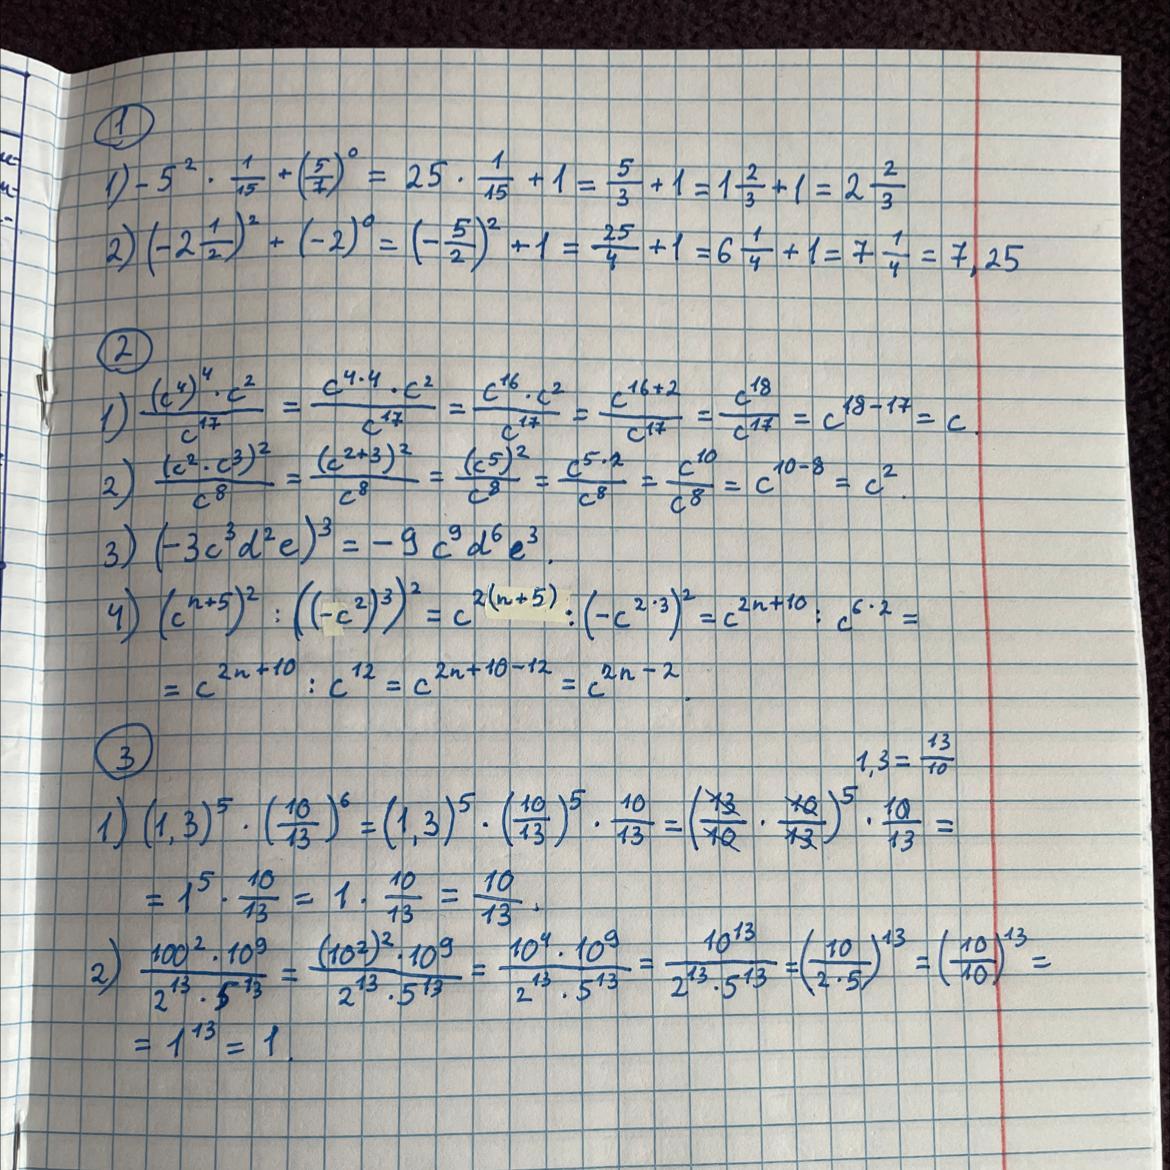 1
1) -5² · 1/15 + (5/7)⁰ = 25 · 1/15 + 1 = 5/3 + 1 = 1 2/3 + 1 = 2 2/3
2) (-2 1/2)² + (-2)⁰ = (-5/2)² + 1 = 25/4 + 1 = 6 1/4 + 1 = 7 1/4 = 7,25
2
1) (c⁴)⁴ · c² / c¹⁷ = c⁴·⁴ · c² / c¹⁷ = c¹⁶ · c² / c¹⁷ = c¹⁶⁺² / c¹⁷ = c¹⁸ / c¹⁷ = c¹⁸⁻¹⁷ = c.
2) (c² · c³)² / c⁸ = (c²⁺³)² / c⁸ = (c⁵)² / c⁸ = c⁵·² / c⁸ = c¹⁰ / c⁸ = c¹⁰⁻⁸ = c².
3) (-3c³d²e)³ = -9 c⁹d⁶e³.
4) (cⁿ⁺⁵)² : ((-c²)³)² = c²⁽ⁿ⁺⁵⁾ : (-c²·³)² = c²ⁿ⁺¹⁰ : c⁶·² =
= c²ⁿ⁺¹⁰ : c¹² = c²ⁿ⁺¹⁰⁻¹² = c²ⁿ⁻².
3
1,3 = 13/10
1) (1,3)⁵ · (10/13)⁶ = (1,3)⁵ · (10/13)⁵ · 10/13 = (13/10 · 10/13)⁵ · 10/13 =
= 1⁵ · 10/13 = 1 · 10/13 = 10/13.
2) 100² · 10⁹ / 2¹³ · 5¹³ = (10²)² · 10⁹ / 2¹³ · 5¹³ = 10⁴ · 10⁹ / 2¹³ · 5¹³ = 10¹³ / 2¹³ · 5¹³ = (10 / 2·5)¹³ = (10/10)¹³ =
= 1¹³ = 1.